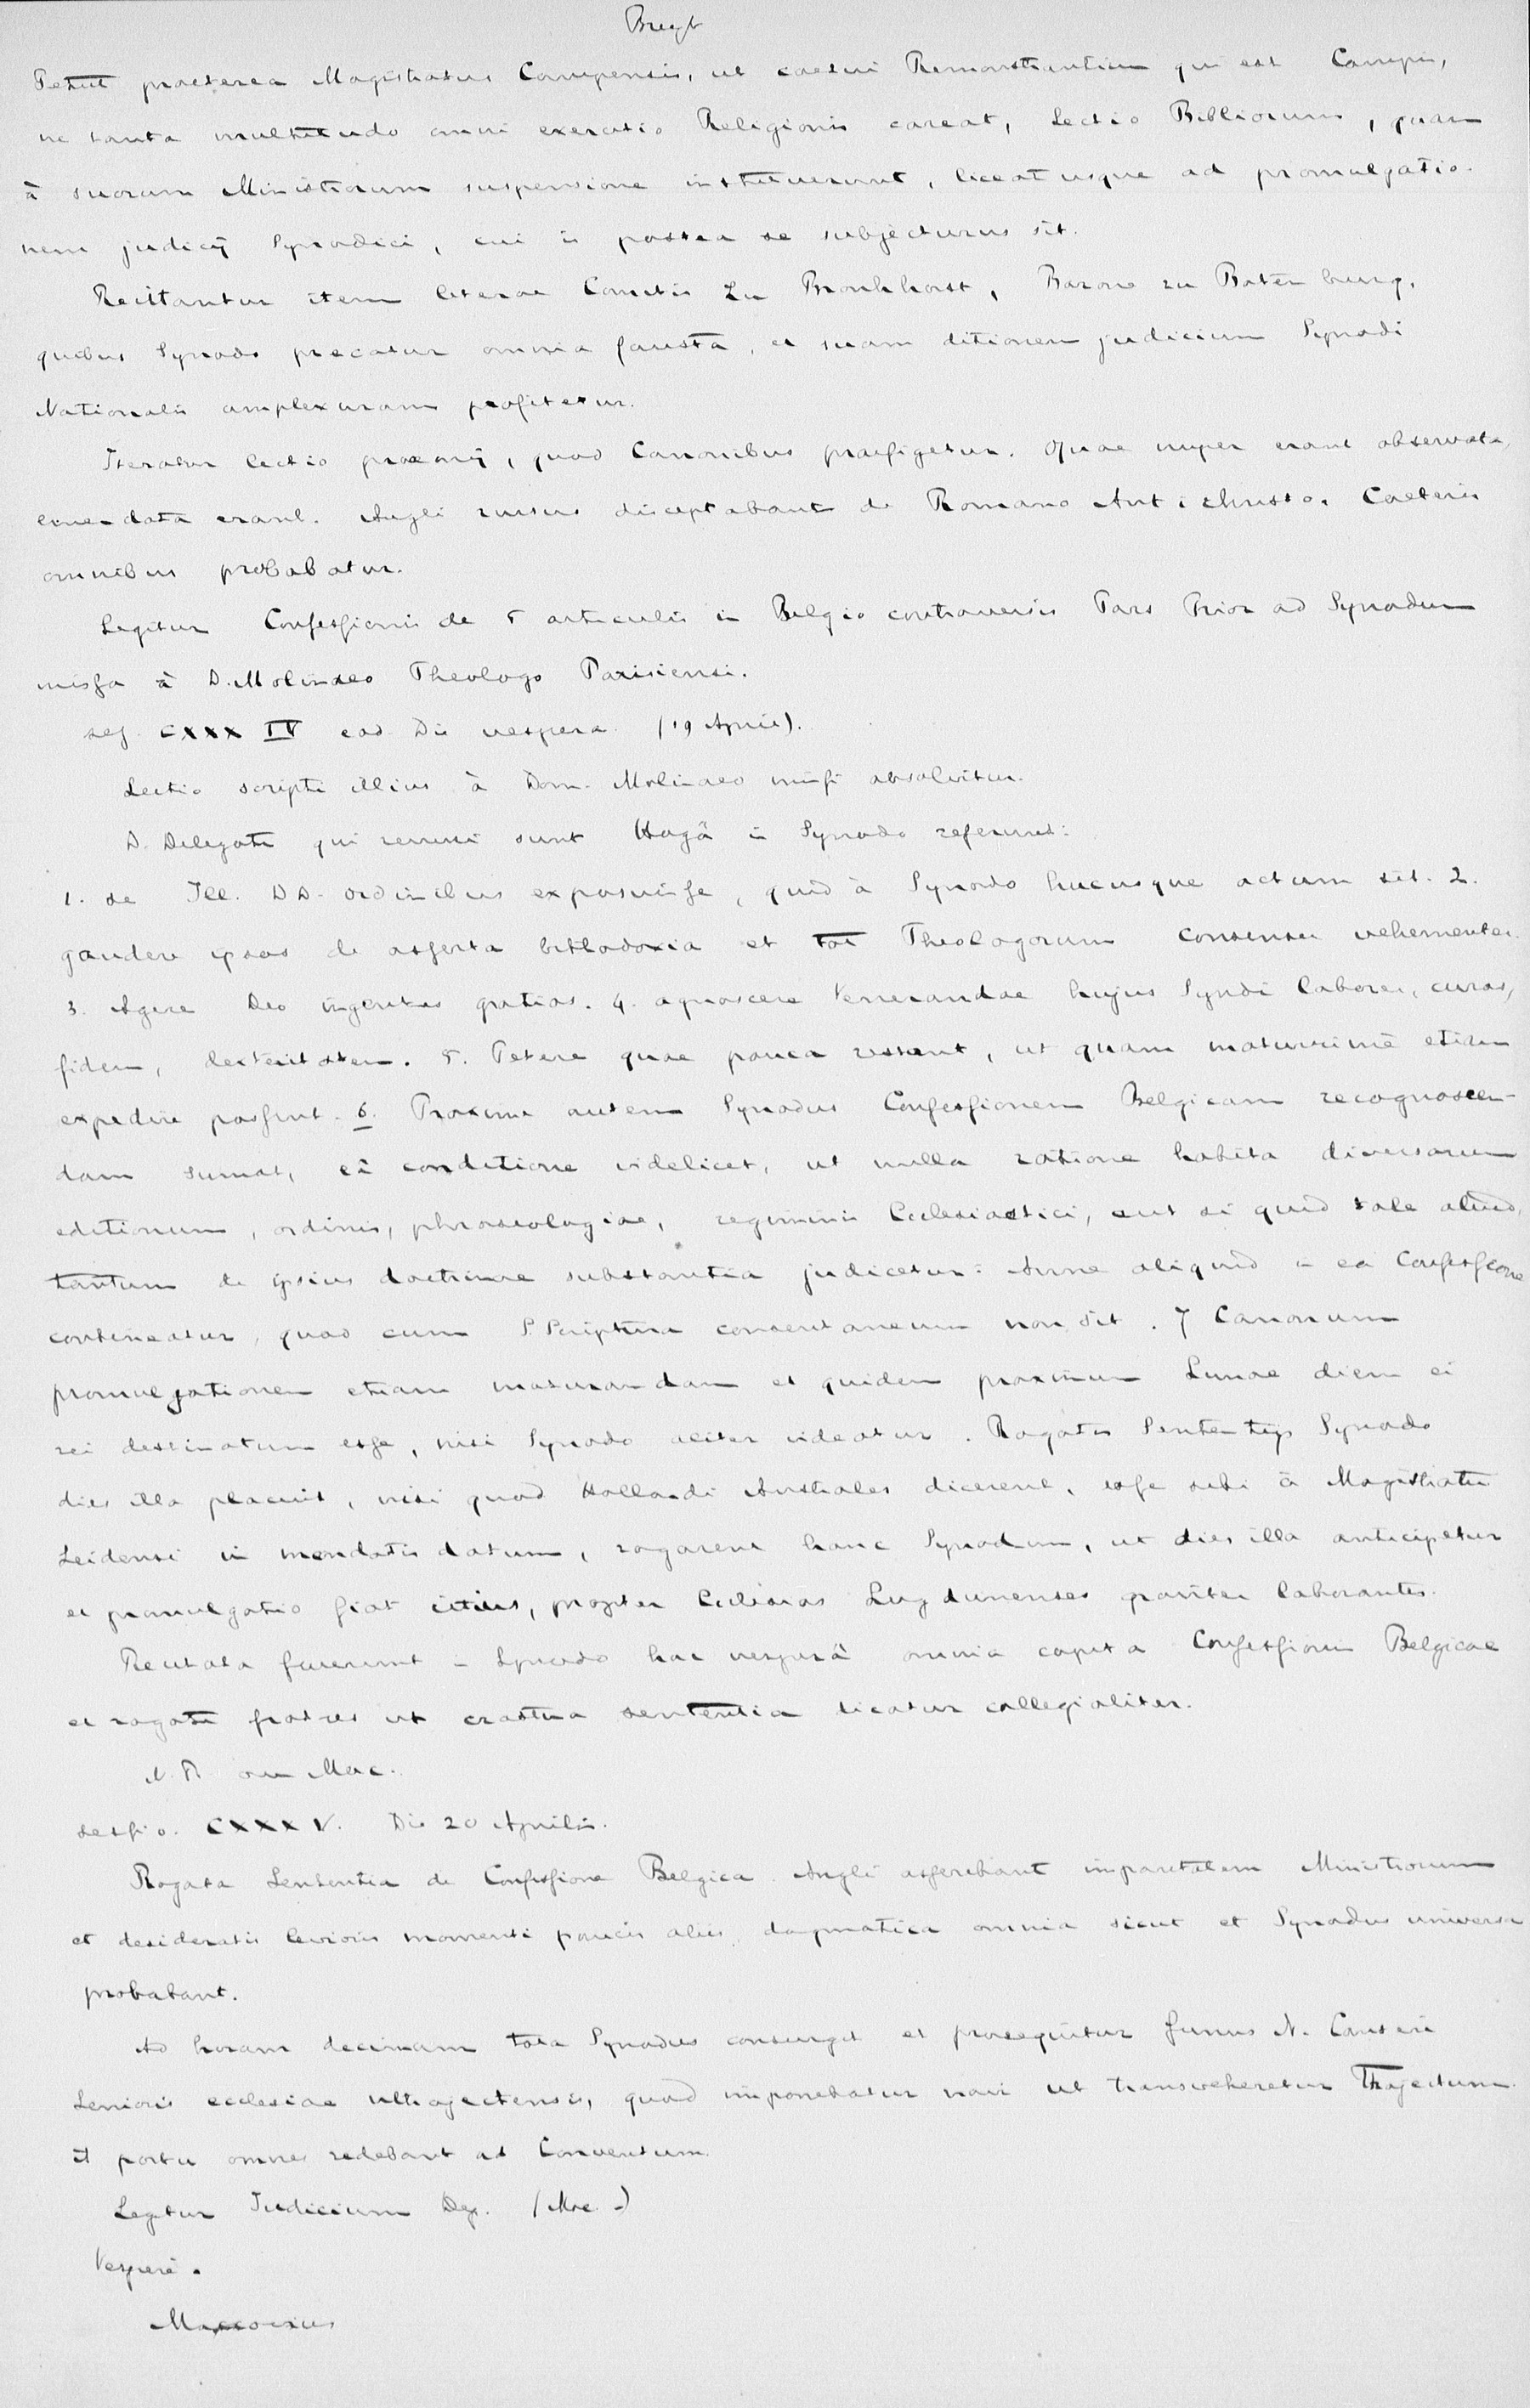 Petiit praeterea Magistratus Campensis, ut coetui Remonstrantium qui est Campis,
ne tanta multitudo omni exercitio Religionis careat, Lectio Bibliorum, quam
à suorum Ministrorum suspensione instituerunt, liceat usque ad promulgatio-
nem judicij Synodici, cui is postea se subjecturus sit.
Recitantur item literae Comitis Zu Bronkhorst, Barone zu Batenburg,
quibus Synodo precatur omnia fausta, et suam ditionem judicium Synodi
Nationalis amplexuram profitetur.
Iteratur lectio proemij, quod Canonibus praefigetur. Quae nuper erant observata,
emendata erant. Angli rursus disceptabant de Romano Antichristo. Caeteris
omnibus probabatur.
Legitur Confessionis de 5 articulis in Belgio controversis Pars Prior ad Synodum
missa à D. Molinaeo Theologo Parisiensi.
ses. CXXXIV eod. Die vespera (19 April).
Lectio scripti illius à Dom. Molinaeo missi absolvitur.
D. Delegati qui reversi sunt Hagâ in Synodo referunt:
1. se Ill. DD. Ordinibus exposuisse, quid à Synodo hucusque actum sit. 2.
gaudere ipsos de asserta orthodoxia et tot Theologorum consensu vehementer.
3. Agere Deo ingentes gratias. 4. agnoscere Venerandae hujus Syndi labores, curas,
fidem, dexteritatem. 5. Petere quae pauca restant, ut quam maturrimè etiam
expedire possint. 6. Proxime autem Synodus Confessionem Belgicam recognoscen-
dam sumat, eâ conditione videlicet, ut nulla ratione habita diversarum
editionum, ordinis, phraseologiae, regiminis Ecclesiastici, aut si quid tale aliud,
tantum de ipsius doctrinae substantia judicetur: Anne aliquid in ea Confessione
contineatur, quod cum S. Scriptura consentaneum non sit. 7 Canonum
promulgationem etiam maturandam et quidem proximum Lunae diem ei
rei destinatum esse, nisi Synodo aliter videatur. Rogatis Sententijs Synodo
dies illa placuit, nisi quod Hollandi Australes dicerent, esse sibi à Magistratu
Leidensi in mandatis datum, rogarent hanc Synodum, ut dies illa anticipetur
et promulgatio fiat citius, propter Ecclesias Lugdunenses graviter laborantes.
Recitata fuerunt in Synodo hac vesperâ omnia capita Confessionis Belgicae
et rogati fratres ut crastina sententia dicatur collegialiter.
N.B. om Mac.
Sessio. CXXXV. Die 20 Aprilis.
Rogata Sententia de Confessione Belgica. Angli asserebant imparitatem Ministrorum
et desideratis levioris momenti paucis aliis, dogmatica omnia sicut et Synodus universa
probabant.
Ad horam decimam tota Synodus consurgit et prosequitur funus N.
Senioris ecclesiae ultrajectensis, quod imponebatur navi ut transveheretur Trajectum.
è portu omnes redebant ad Conventum.
Legitur Judicium Dep. (Mac.)
Vesperè.
Maccovius